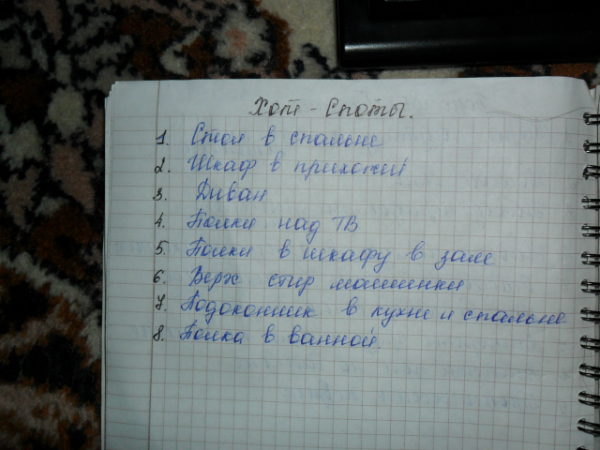 Хот - Споты.
1. Стол в спальне
2. Шкаф в прихожей
3. Диван
4. Полки над ТВ
5. Полки в шкафу в зале
6. Верх стир машинки
7. Подоконник в кухне и спальне
8. Полка в ванной